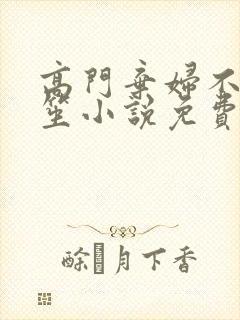 高門棄婦不
笙小說免費
酴月下香